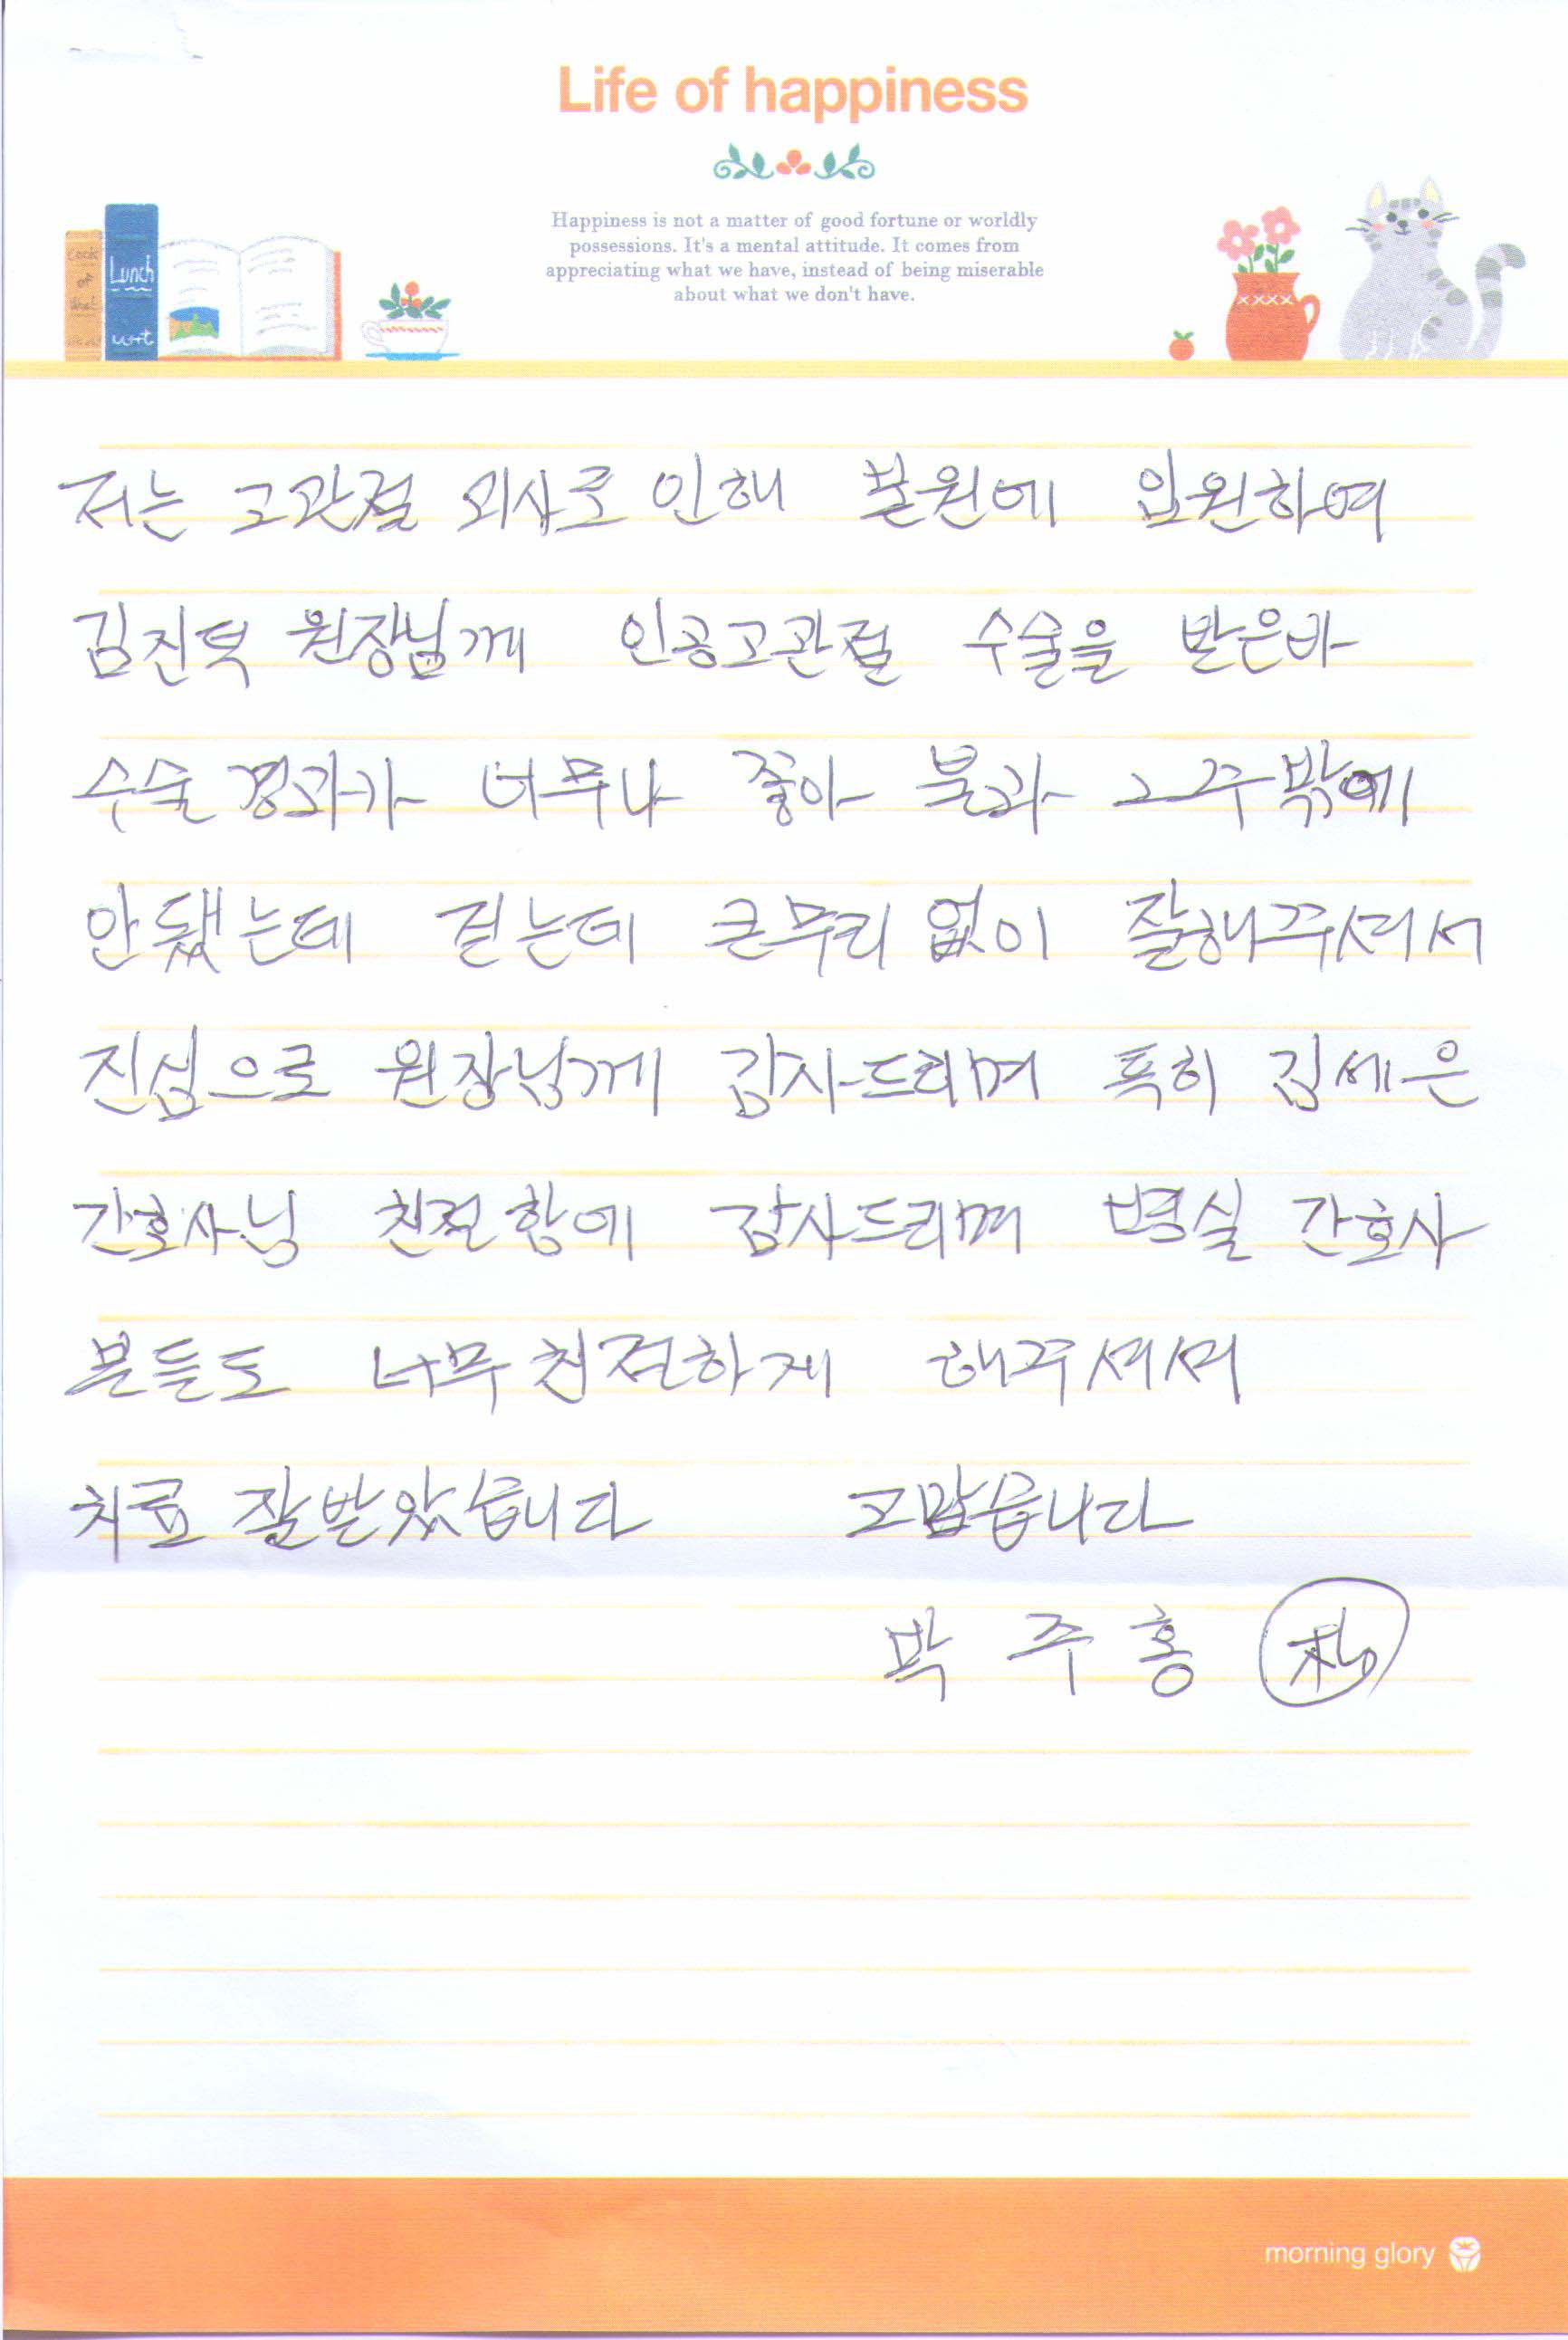 Life of happiness
Happiness is not a matter of good fortune or worldly
possessions. It's a mental attitude. It comes from
appreciating what we have, instead of being miserable
about what we don't have.
Lunch
저는 고관절 괴사로 인해 본원에 입원하여
김진덕 원장님께 인공고관절 수술을 받은바
수술 경과가 너무나 좋아 불과 2주밖에
안됐는데 걷는데 큰무리 없이 잘해주셔서
진심으로 원장님께 감사드리며 특히 김세은
간호사님 친절함에 감사드리며 병실 간호사
분들도 너무 친절하게 해주셔서
치료 잘받았습니다 고맙습니다
박 주 홍 朴
morning glory